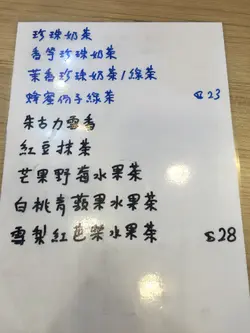 珍珠奶茶
香芋珍珠奶茶
茉香珍珠奶茶/綠茶
蜂蜜柚子綠茶 $23
朱古力雲香
紅豆抹茶
芒果野莓水果茶
白桃青蘋果水果茶
雪梨紅芭樂水果茶 $28